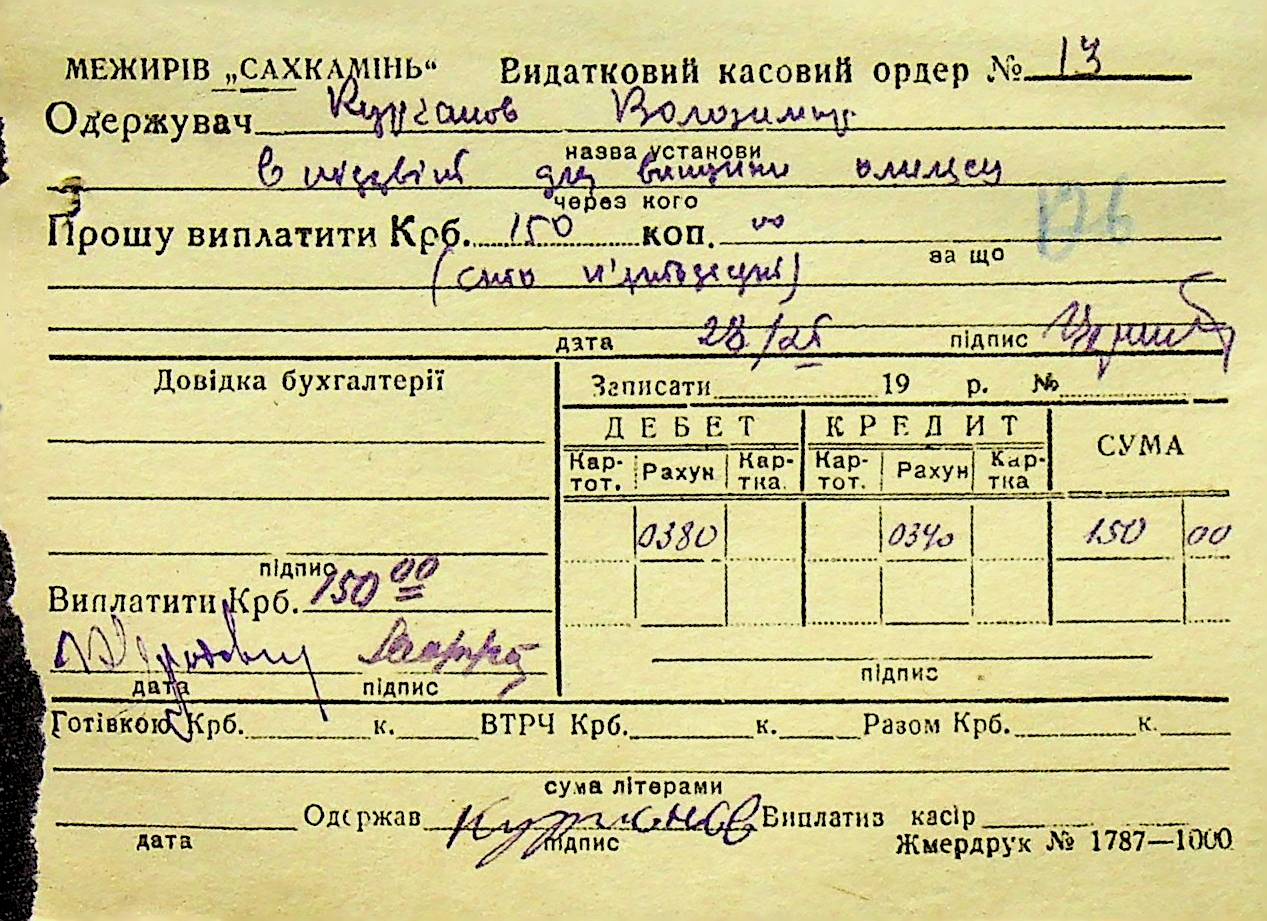 МЕЖИРІВ „САХКАМІНЬ“ Видатковий касовий ордер № 13
Одержувач Курганов Володимир
назва установи
в підзвіт для
через кого
Прошу виплатити Крб. 150 коп. 00
за що
(сто п'ятдесят)
дата 28/ підпис
Довідка бухгалтерії
Записати 19 р. №
ДЕБЕТ КРЕДИТ СУМА
Кар-тот. Рахун Кар-тка. Кар-тот. Рахун Кар-тка
0380 0340 150 00
підпис
Виплатити Крб. 150 00
дата підпис
підпис
Готівкою Крб. к. ВТРЧ Крб. к. Разом Крб. к.
сума літерами
Одержав Курганов Виплатив касір
дата підпис Жмердрук № 1787—1000